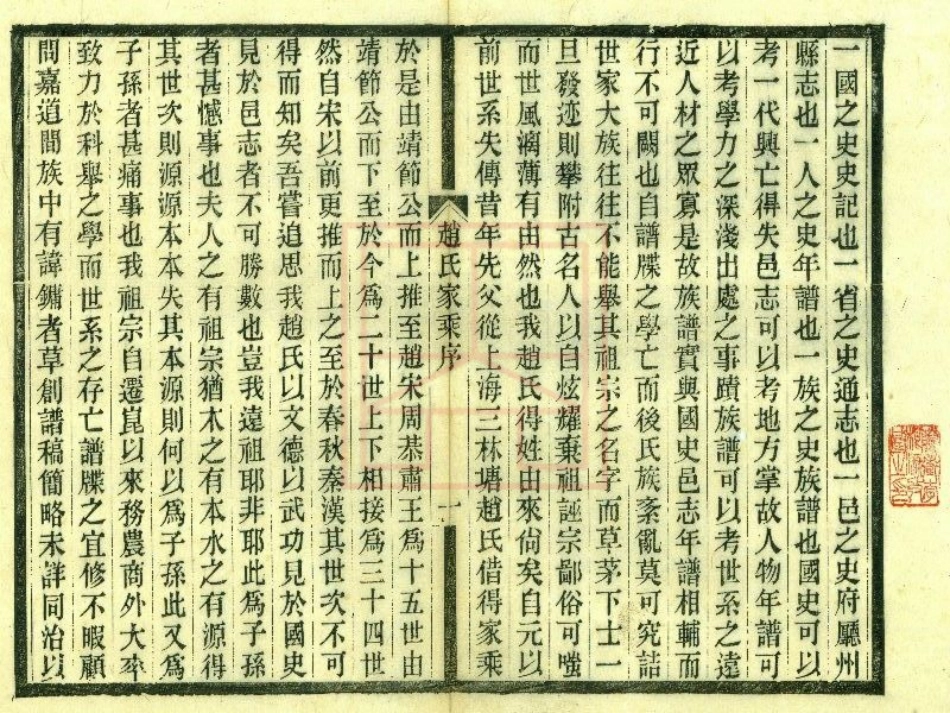 一國之史史記也一省之史通志也一邑之史府廳州
縣志也一人之史年譜也一族之史族譜也國史可以
考一代興亡得失邑志可以考地方掌故人物年譜可
以考學力之深淺出處之事蹟族譜可以考世系之遠
近人材之眾寡是故族譜實與國史邑志年譜相輔而
行不可闕也自譜牒之學亡而後氏族紊亂莫可究詰
世家大族往往不能舉其祖宗之名字而草茅下士一
旦發迹則攀附古名人以自炫耀棄祖誣宗鄙俗可嗤
而世風漓薄有由然也我趙氏得姓由來尙矣自元以
前世系失傳昔年先父從上海三林塘趙氏借得家乘
趙氏家乘序
一
於是由靖節公而上推至趙宋周恭肅王爲十五世由
靖節公而下至於今爲二十世上下相接爲三十四世
然自宋以前更推而上之至於春秋秦漢其世次不可
得而知矣吾嘗追思我趙氏以文德以武功見於國史
見於邑志者不可勝數也豈我遠祖耶非耶此爲子孫
者甚憾事也夫人之有祖宗猶木之有本水之有源得
其世次則源源本本失其本源則何以爲子孫此又爲
子孫者甚痛事也我祖宗自遷崑以來務農商外大率
致力於科舉之學而世系之存亡譜牒之宜修不暇顧
問嘉道間族中有諱鏞者草創譜稿簡略未詳同治以